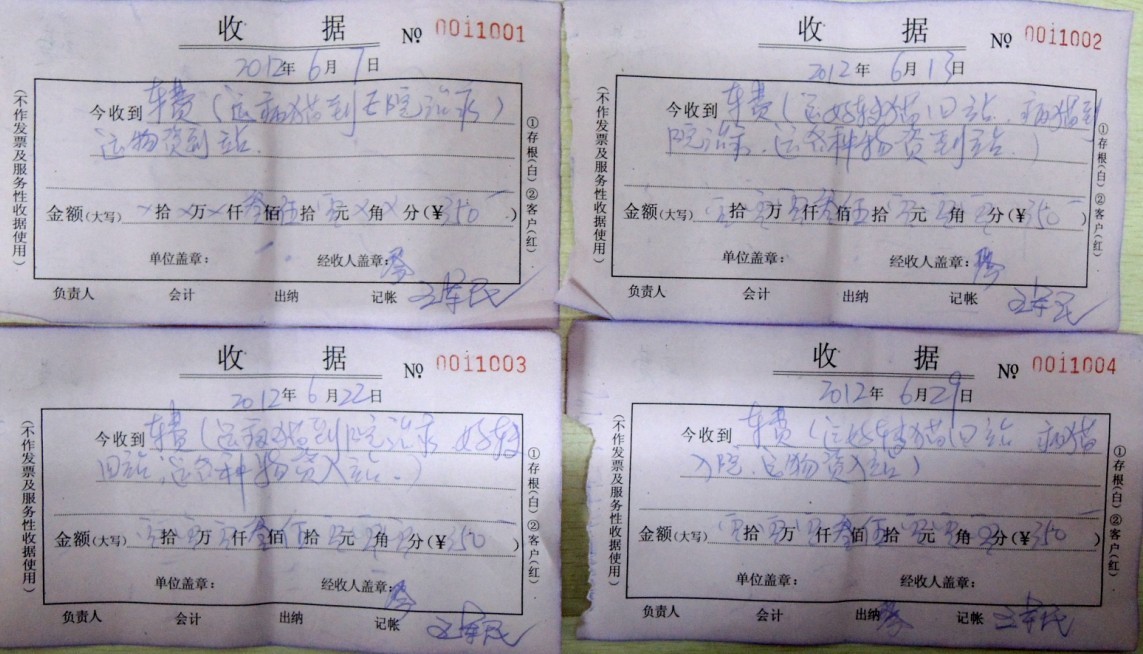 收 据 № 0011001
2012年6月7日
今收到 车费(运病猫到医院治疗)
运物资到站
金额(大写) × 拾 × 万 × 仟 叁 佰 伍 拾 零 元 × 角 × 分(¥350)
单位盖章: 经收人盖章:
负责人 会计 出纳 记帐
(不作发票及服务性收据使用)
①存根(白)②客户(红)
收 据 № 0011002
2012年6月13日
今收到 车费(运好转猫回站、病猫到
院治疗、运各种物资到站)
金额(大写) 零 拾 零 万 零 仟 叁 佰 伍 拾 零 元 零 角 零 分(¥350)
单位盖章: 经收人盖章:
负责人 会计 出纳 记帐
(不作发票及服务性收据使用)
①存根(白)②客户(红)
收 据 № 0011003
2012年6月22日
今收到 车费(运病猫到院治疗 好转
回站,运各种物资入站。)
金额(大写) 零 拾 零 万 零 仟 叁 佰 伍 拾 零 元 零 角 零 分(¥350)
单位盖章: 经收人盖章:
负责人 会计 出纳 记帐
(不作发票及服务性收据使用)
①存根(白)②客户(红)
收 据 № 0011004
2012年6月29日
今收到 车费(运好转猫回站 病猫
入院、运物资入站)
金额(大写) 零 拾 零 万 零 仟 叁 佰 伍 拾 零 元 零 角 零 分(¥350)
单位盖章: 经收人盖章:
负责人 会计 出纳 记帐
(不作发票及服务性收据使用)
①存根(白)②客户(红)